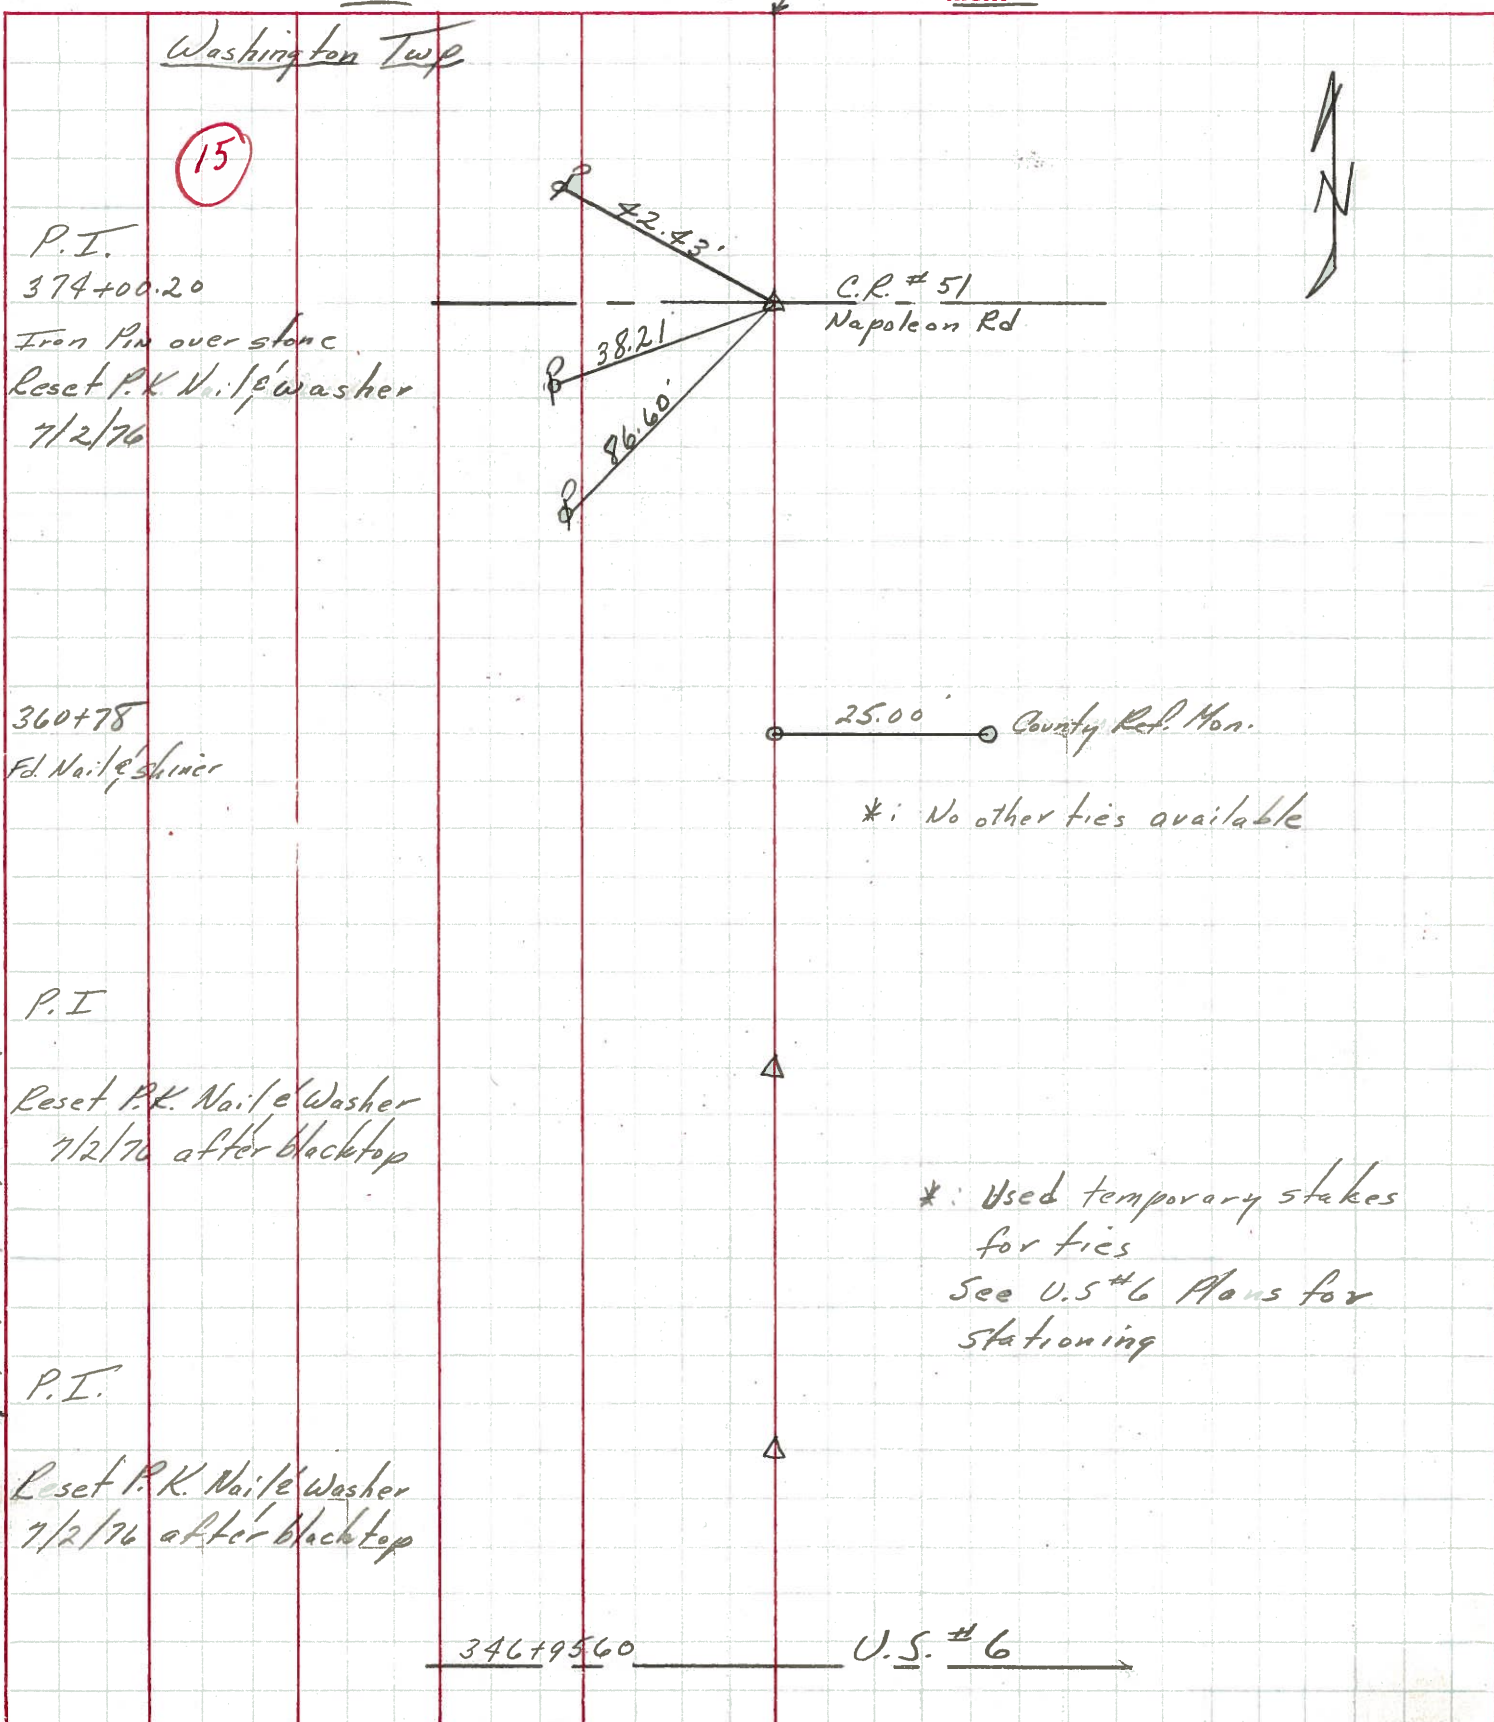 Washington Twp
15
N
P.I.
374+00.20
Iron Pin over stone
Reset P.K Nail & washer
7/2/76
42.43'
38.21'
86.60'
C.R. # 51
Napoleon Rd
360+78
Fd. Nail & shiner
25.00'
County Ref. Mon.
*: No other ties available
P.I
Reset P.K. Nail & Washer
7/2/76 after blacktop
*: Used temporary stakes
for ties
See U.S #6 Plans for
stationing
P.I.
Reset P.K. Nail & Washer
7/2/76 after blacktop
346+95.60
U.S. # 6